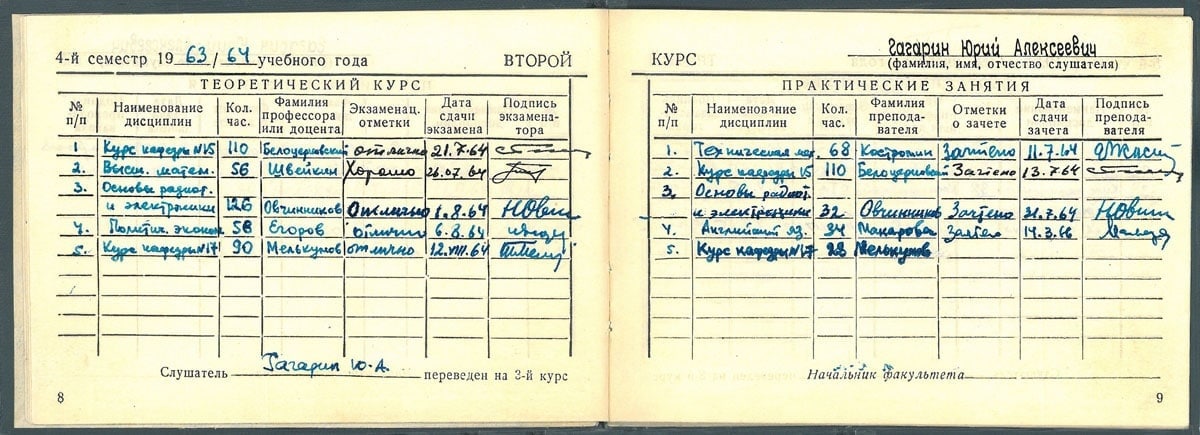 4-й семестр 1963/64 учебного года ВТОРОЙ
ТЕОРЕТИЧЕСКИЙ КУРС
№ п/п Наименование дисциплин Кол. час. Фамилия профессора или доцента Экзаменац. отметки Дата сдачи экзамена Подпись экзамена-тора
1 Курс кафедры №15 110 Белоцерковский отлично 21.7.64
2. Высш. матем. 56 Швейкин Хорошо 26.07.64
3. Основы радиот.
и электроники 126 Овчинников Отлично 1.8.64 НОвчин
4. Политич. эконом 58 Егоров отлично 6.8.64
5. Курс кафедры №17 90 Мелькумов отлично 12.VIII.64
Слушатель Гагарин Ю.А. переведен на 3-й курс
8
КУРС Гагарин Юрий Алексеевич
(фамилия, имя, отчество слушателя)
ПРАКТИЧЕСКИЕ ЗАНЯТИЯ
№ п/п Наименование дисциплин Кол. час. Фамилия препода-вателя Отметки о зачете Дата сдачи зачета Подпись препода-вателя
1. Техническая мех. 68 Костромин Зачтено 11.7.64
2. Курс кафедры 15 110 Белоцерковский Зачтено 13.7.64
3. Основы радиот.
и электроники 32 Овчинников Зачтено 31.7.64 НОвчин
4. Английский яз. 34 Макарова Зачтено 14.3.66
5. Курс кафедры №17 28 Мелькумов
Начальник факультета
9